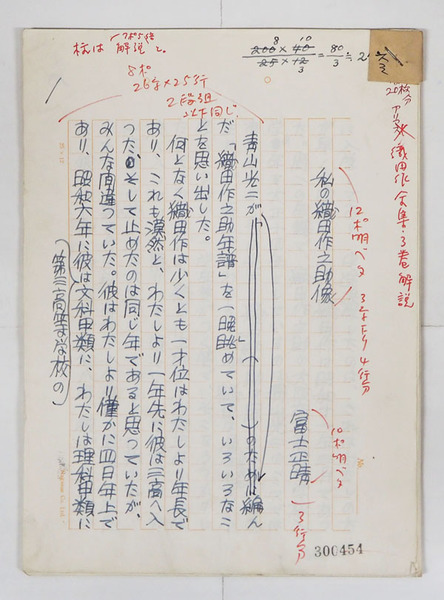 柱は「解説」と。
8ポ
26字×25行
2段組
以下同じ
織田作全集・3巻解説
私の織田作之助像
12ポ明・ベタ
3字下り 4行分
富士正晴
10ポ明ベタ
3行分
青山光二が
のために編ん
だ「織田作之助年譜」を一晩眺めていて、いろいろなこ
とを思い出した。
何となく織田作は少くとも一才位はわたしより年長で
あり、これも漠然と、わたしより一年先に彼は三高へ入
った、そして止めたのは同じ年であると思っていたが、
みんな間違っていた。彼はわたしより僅かに四日年上で
あり、昭和六年に彼は文科甲類に、わたしは理科甲類に
(第三高等学校の)
300454